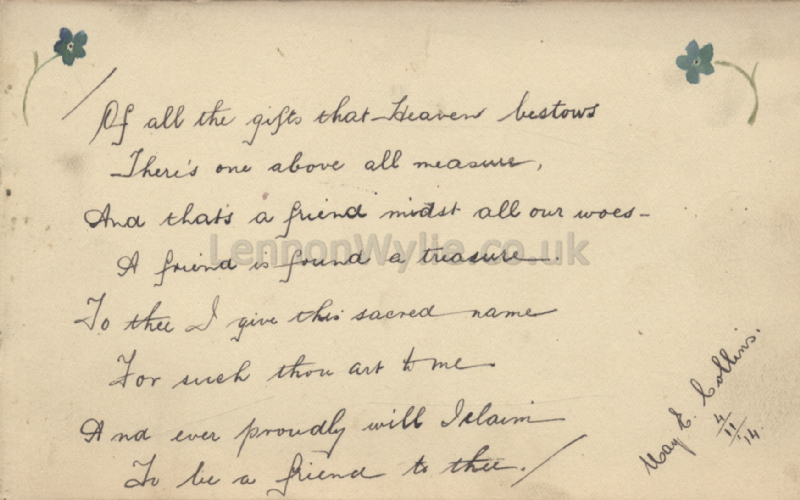 Of all the gifts that Heaven bestows
There's one above all measure,
And that's a friend midst all our woes –
A friend is found a treasure.
To thee I give this sacred name
For such thou art to me
And ever proudly will I claim
To be a friend to thee.
May E. Collins.
4/11/14.
LennonWylie.co.uk